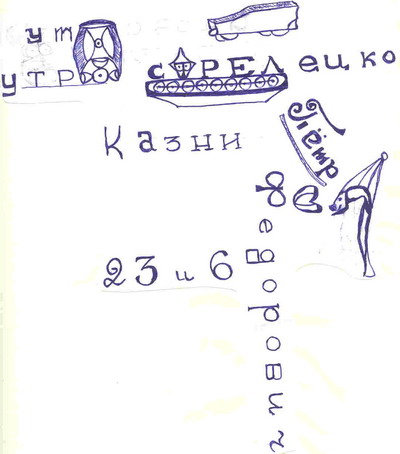 ут
утр
стРЕЛецко
Казни
Пётр
Федорович
23 и 6